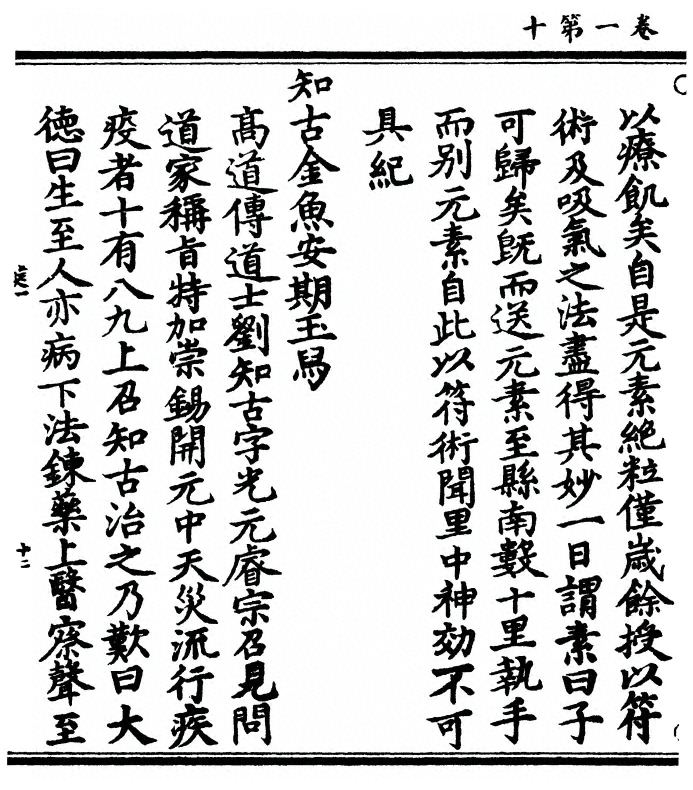 卷一第十
以療飢矣自是元素絶粒僅歲餘授以符
術及吸氣之法盡得其妙一日謂素曰子
可歸矣旣而送元素至縣南數十里執手
而别元素自此以符術聞里中神効不可
具紀
知古金魚安期玉舄
髙道傳道士劉知古字光元睿宗召見問
道家稱旨特加崇錫開元中天災流行疾
疫者十有八九上召知古治之乃歎曰大
德曰生至人亦病下法鍊藥上醫察聲至
十二